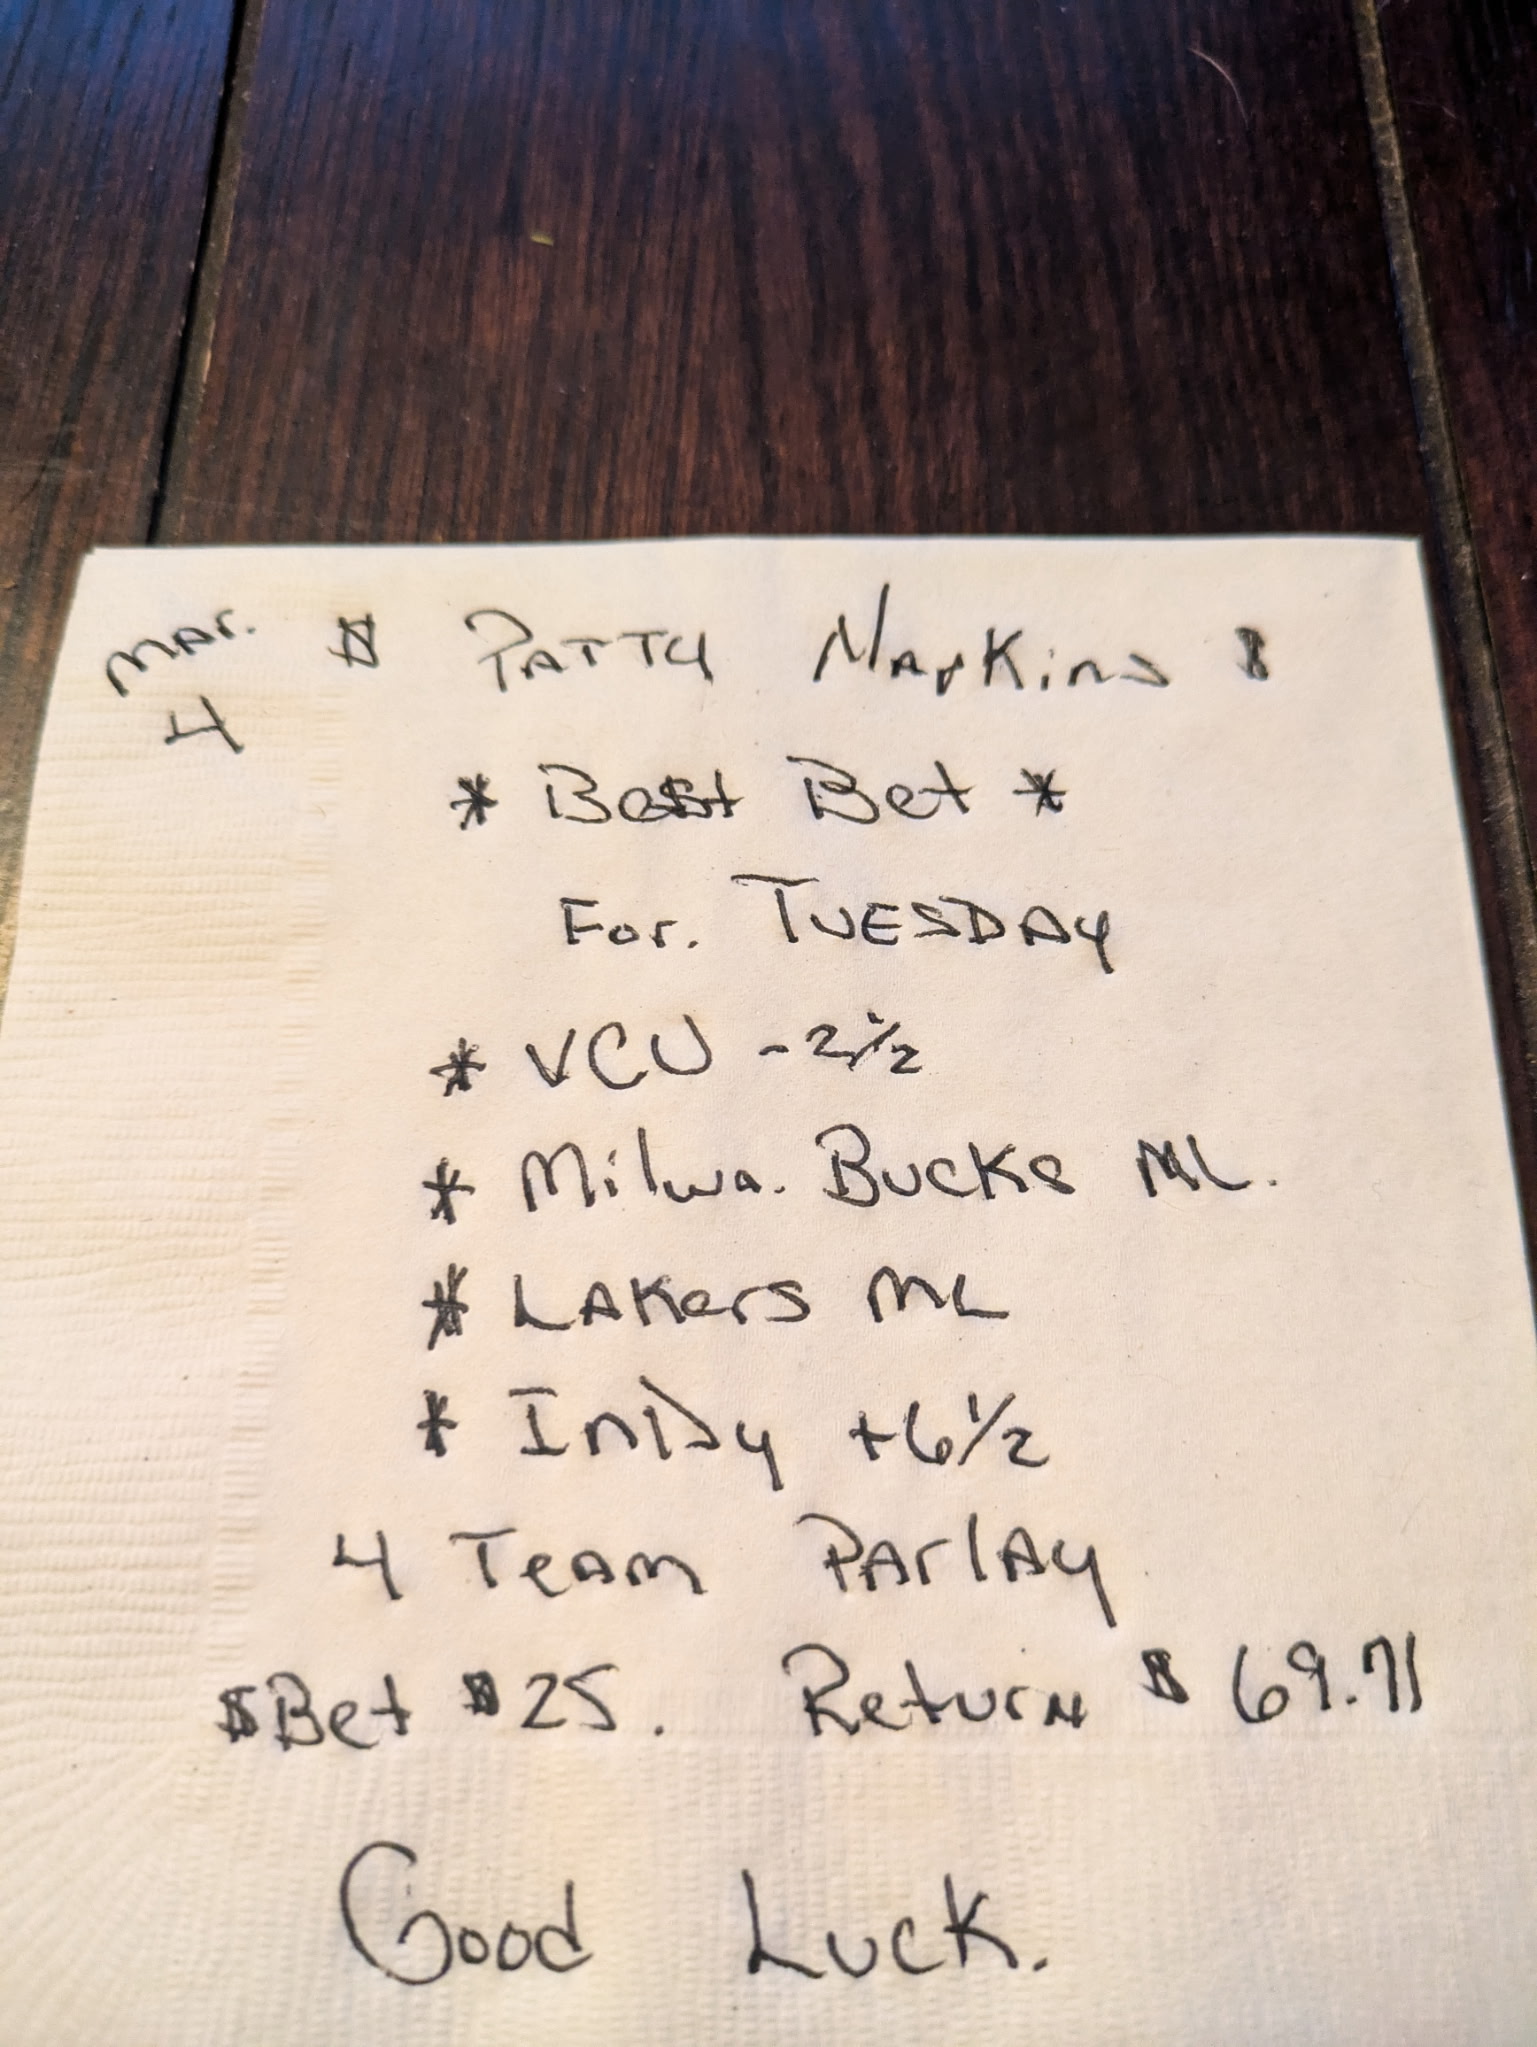 Mar. $ Patty Napkins $
4
* Best Bet *
For. TUESDAY
* VCU -2½
* Milwa. Bucks ML.
* LAKers ML
* InDy +6½
4 Team Parlay
$Bet $25. Return $69.71
Good Luck.